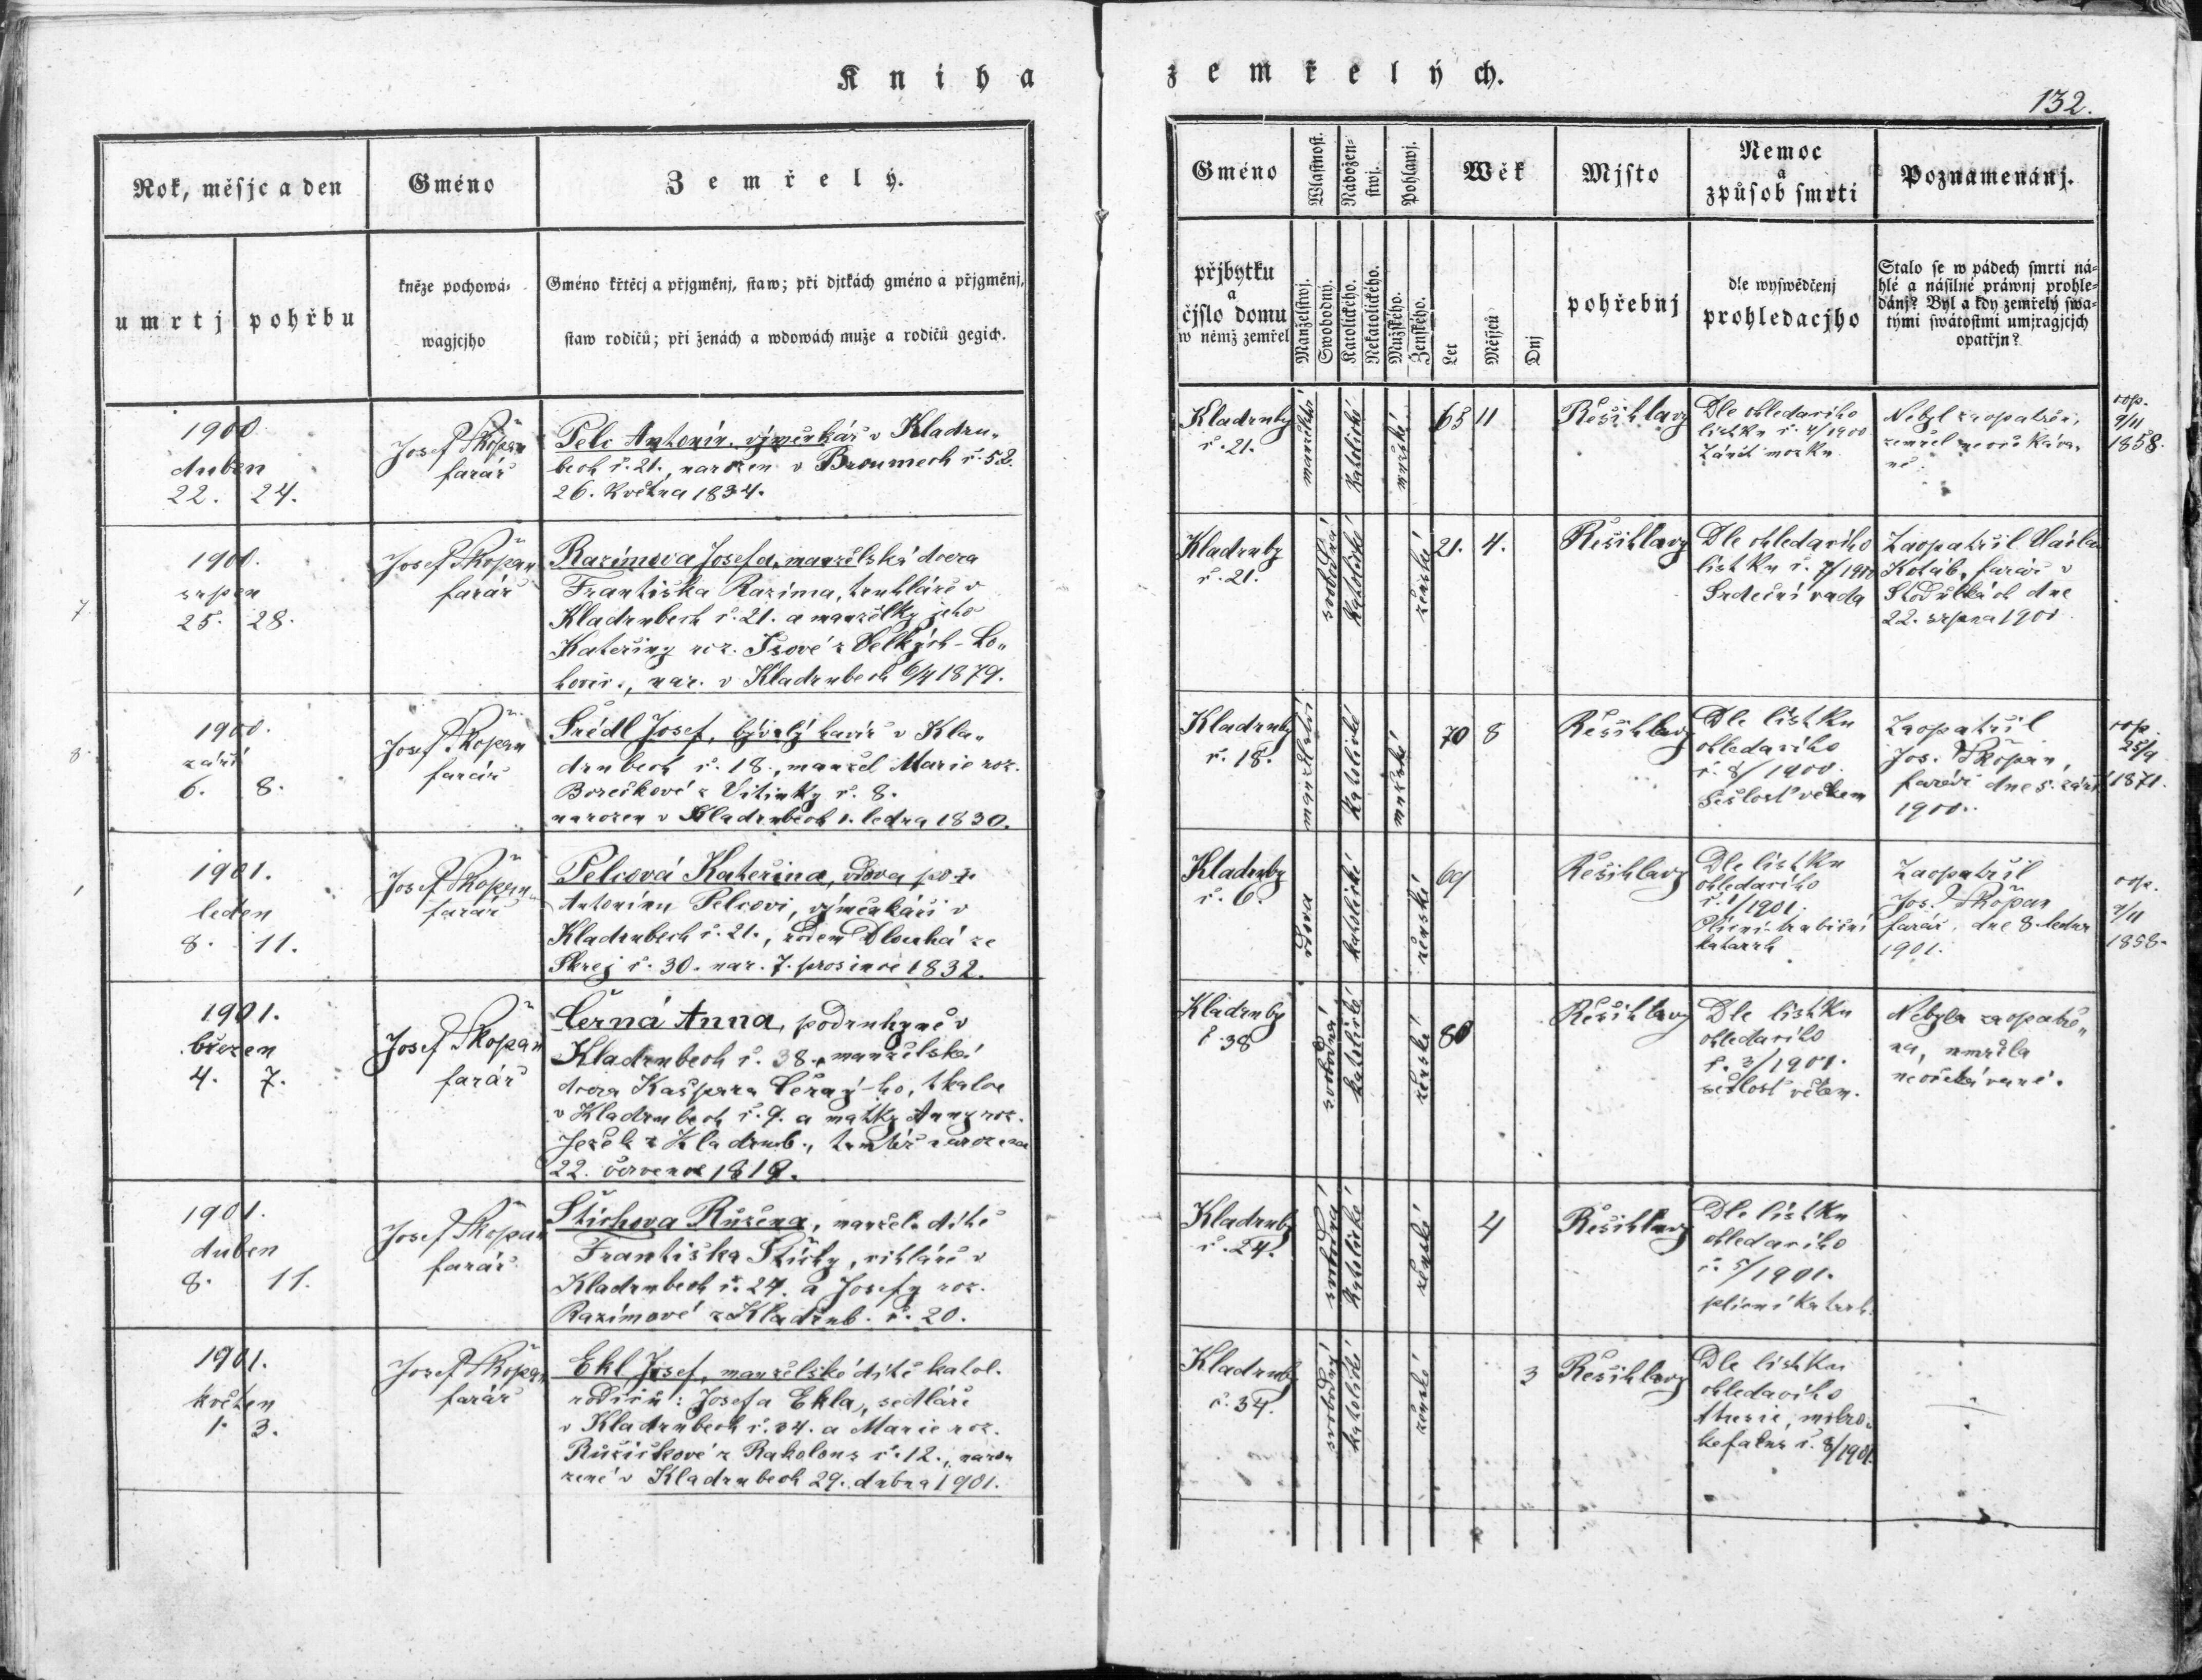 Kniha zemřelých.
132.
Rok, měsjc a den
Gméno
Zemřelý.
Gméno
Wlastnost.
Nábožen-
stwj.
Pohlawj.
Wěk
Mjsto
Nemoc
a
způsob smrti
Poznamenánj.
umrtj
pohřbu
kněze pochowá-
wagjcjho
Gméno křtěcj a přjgměnj, staw; při djtkách gméno a přjgměnj,
staw rodičů; při ženách a wdowách muže a rodičů gegich.
přjbytku
a
čjslo domu
w němž zemřel
Manželstwj.
Swobodný.
Katolického.
Nekatolického.
Mužského.
Ženského.
Let
Měsjců
Dnj
pohřebnj
dle wyswědčenj
prohledacjho
Stalo se w pádech smrti ná-
hlé a násilné práwnj prohle-
dánj? Byl a kdy zemřelý swa-
tými swátostmi umjragjcjch
opatřjn?
1900
duben
22. 24.
Josef Škopán
farář
Pelc Antonín, výměnkář v Kladru-
bech č. 21., narozen v Broumech č. 52.
26. května 1834.
Kladruby
č. 21.
manželský
katolické
mužské
65 11
Řešihlavy
Dle ohledacího
lístku č. 4/1900
Zánět mozku
Nebyl zaopatřen,
zemřel neočekáva-
ně.
cop.
9/11
1858.
7
1900.
srpen
25. 28.
Josef Škopán
farář
Razímova Josefa, manželská dcera
Františka Razíma, truhláře v
Kladrubech č. 21. a manželky jeho
Kateřiny roz. z Velkých-Lo-
hovic., nar. v Kladrubech 6/4 1879.
Kladruby
č. 21.
svobodná
katolické
ženské
21. 4.
Řešihlavy
Dle ohledacího
lístku č. 7/1900
Srdeční vada
Zaopatřil
Kotáb, farář v
dne
22. srpna 1900
8
1900.
září
6. 8.
Josef Škopán
farář
Šrédl Josef, bývalý havíř v Kla-
drubech č. 18., manžel Marie roz.
Borečkové z Vitinky č. 8.
narozen v Kladrubech 1. ledna 1830.
Kladruby
č. 18.
manželství
katolické
mužské
70 8
Řešihlavy
Dle lístku
ohledacího
č. 8/1900.
Sešlosť věkem
Zaopatřil
Jos. Škopán,
farář dne 5. září
1900.
cop.
25/9
1871.
1
1901.
leden
8. 11.
Josef Škopán
farář
Pelcová Kateřina, vdova po
Antonínu Pelcovi, výměnkáři v
Kladrubech č. 21., rodem Dlouhá ze
Skrej č. 30. nar. 7. prosince 1832.
Kladruby
č. 6.
vdova
katolické
ženské
69
Řešihlavy
Dle lístku
ohledacího
č. 1/1901.
katarrh
Zaopatřil
Jos. Škopán
farář, dne 8. ledna
1901.
cop.
9/11
1858.
1901.
březen
4. 7.
Josef Škopán
farář
Černá Anna, podruhyně v
Kladrubech č. 38., manželská
dcera Kašpara Černý-ho, tkalce
v Kladrubech č. 9. a matky Anny roz.
Ježek z Kladrub., tamtéž narozena
22. července 1819.
Kladruby
č 38
svobodná
katolické
ženské
80
Řešihlavy
Dle lístku
ohledacího
č. 3/1901.
sešlosť věkem.
Nebyla zaopatře-
na, umřela
neočekávaně.
1901.
duben
8. 11.
Josef Škopán
farář
Štichova Růžena, manžel. dítě
Františka Štichy, cihláře v
Kladrubech č. 24. a Josefy roz.
Razímové z Kladrub. č. 20.
Kladruby
č. 24.
svobodná
katolické
ženské
4
Řešihlavy
Dle lístku
ohledacího
č. 5/1901.
plicní katarh.
1901.
květen
1. 3.
Josef Škopán
farář
Ekl Josef, manželské dítě katol.
rodičů: Josefa Ekla, sedláře
v Kladrubech č. 34. a Marie roz.
Růžičkové z Rakolous č. 12., naro-
zené v Kladrubech 29. dubna 1901.
Kladruby
č. 34.
svobodný
katolické
ženské
3
Řešihlavy
Dle lístku
ohledacího
č. 8/1901